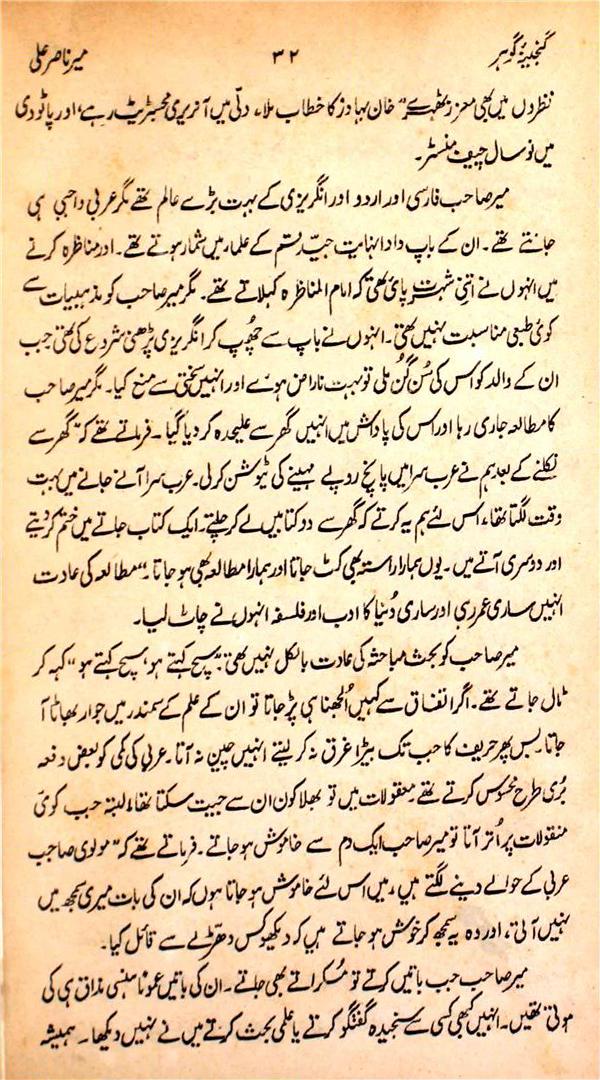 گنجینۂ گوہر ۳۲ میر ناصر علی
نظروں میں بھی معزز ٹھہرے۔ "خان بہادر" کا خطاب ملا، دلّی میں آنریری مجسٹریٹ رہے، اور پاٹودی
میں نو سال چیف منسٹر۔
میر صاحب فارسی اور اردو اور انگریزی کے بہت بڑے عالم تھے مگر عربی واجبی ہی
جانتے تھے۔ ان کے باپ دادا نہایت جیّد قسم کے علما میں شمار ہوتے تھے۔ اور مناظرہ کرنے
میں انہوں نے اتنی شہرت پائی تھی کہ امام المناظرہ کہلاتے تھے۔ مگر میر صاحب کو مذہبیات سے
کوئی طبعی مناسبت نہیں تھی۔ انہوں نے باپ سے چھپ کر انگریزی پڑھنی شروع کی تھی جب
ان کے والد کو اس کی سُن گُن ملی تو بہت ناراض ہوئے اور انہیں سختی سے منع کیا۔ مگر میر صاحب
کا مطالعہ جاری رہا اور اس کی پاداش میں انہیں گھر سے علیحدہ کر دیا گیا۔ فرماتے تھے کہ "گھر سے
نکلنے کے بعد ہم نے عرب سرا میں پانچ روپے مہینے کی ٹیوشن کر لی۔ عرب سرا آنے جانے میں بہت
وقت لگتا تھا، اس لئے ہم یہ کرتے کہ گھر سے دو کتابیں لے کر چلتے۔ ایک کتاب جاتے میں ختم کر دیتے
اور دوسری آتے میں۔ یوں ہمارا راستہ بھی کٹ جاتا اور ہمارا مطالعہ بھی ہو جاتا۔" مطالعہ کی عادت
انہیں ساری عمر رہی اور ساری دُنیا کا ادب اور فلسفہ انہوں نے چاٹ لیا۔
میر صاحب کو بحث مباحثہ کی عادت بالکل نہیں تھی۔ "سچ کہتے ہو، سچ کہتے ہو" کہہ کر
ٹال جاتے تھے۔ اگر اتفاق سے کہیں اُلجھنا ہی پڑ جاتا تو ان کے علم کے سمندر میں جوار بھاٹا آ
جاتا۔ بس پھر حریف کا جب تک بیڑا غرق نہ کر لیتے انہیں چین نہ آتا۔ عربی کی کمی کو بعض دفعہ
بُری طرح محسوس کرتے تھے۔ معقولات میں تو بھلا کون ان سے جیت سکتا تھا، البتہ جب کوئی
منقولات پر اُتر آتا تو میر صاحب ایک دم سے خاموش ہو جاتے۔ فرماتے تھے کہ "مولوی صاحب
عربی کے حوالے دینے لگتے ہیں، میں اس لئے خاموش ہو جاتا ہوں کہ ان کی بات میری سمجھ میں
نہیں آتی، اور وہ یہ سمجھ کر خوش ہو جاتے ہیں کہ دیکھو کس دھڑلے سے قائل کیا۔
میر صاحب جب باتیں کرتے تو مُسکراتے بھی جاتے۔ ان کی باتیں عموماً ہنسی مذاق ہی کی
ہوتی تھیں۔ انہیں کبھی کسی سے سنجیدہ گفتگو کرتے یا علمی بحث کرتے میں نے نہیں دیکھا۔ ہمیشہ